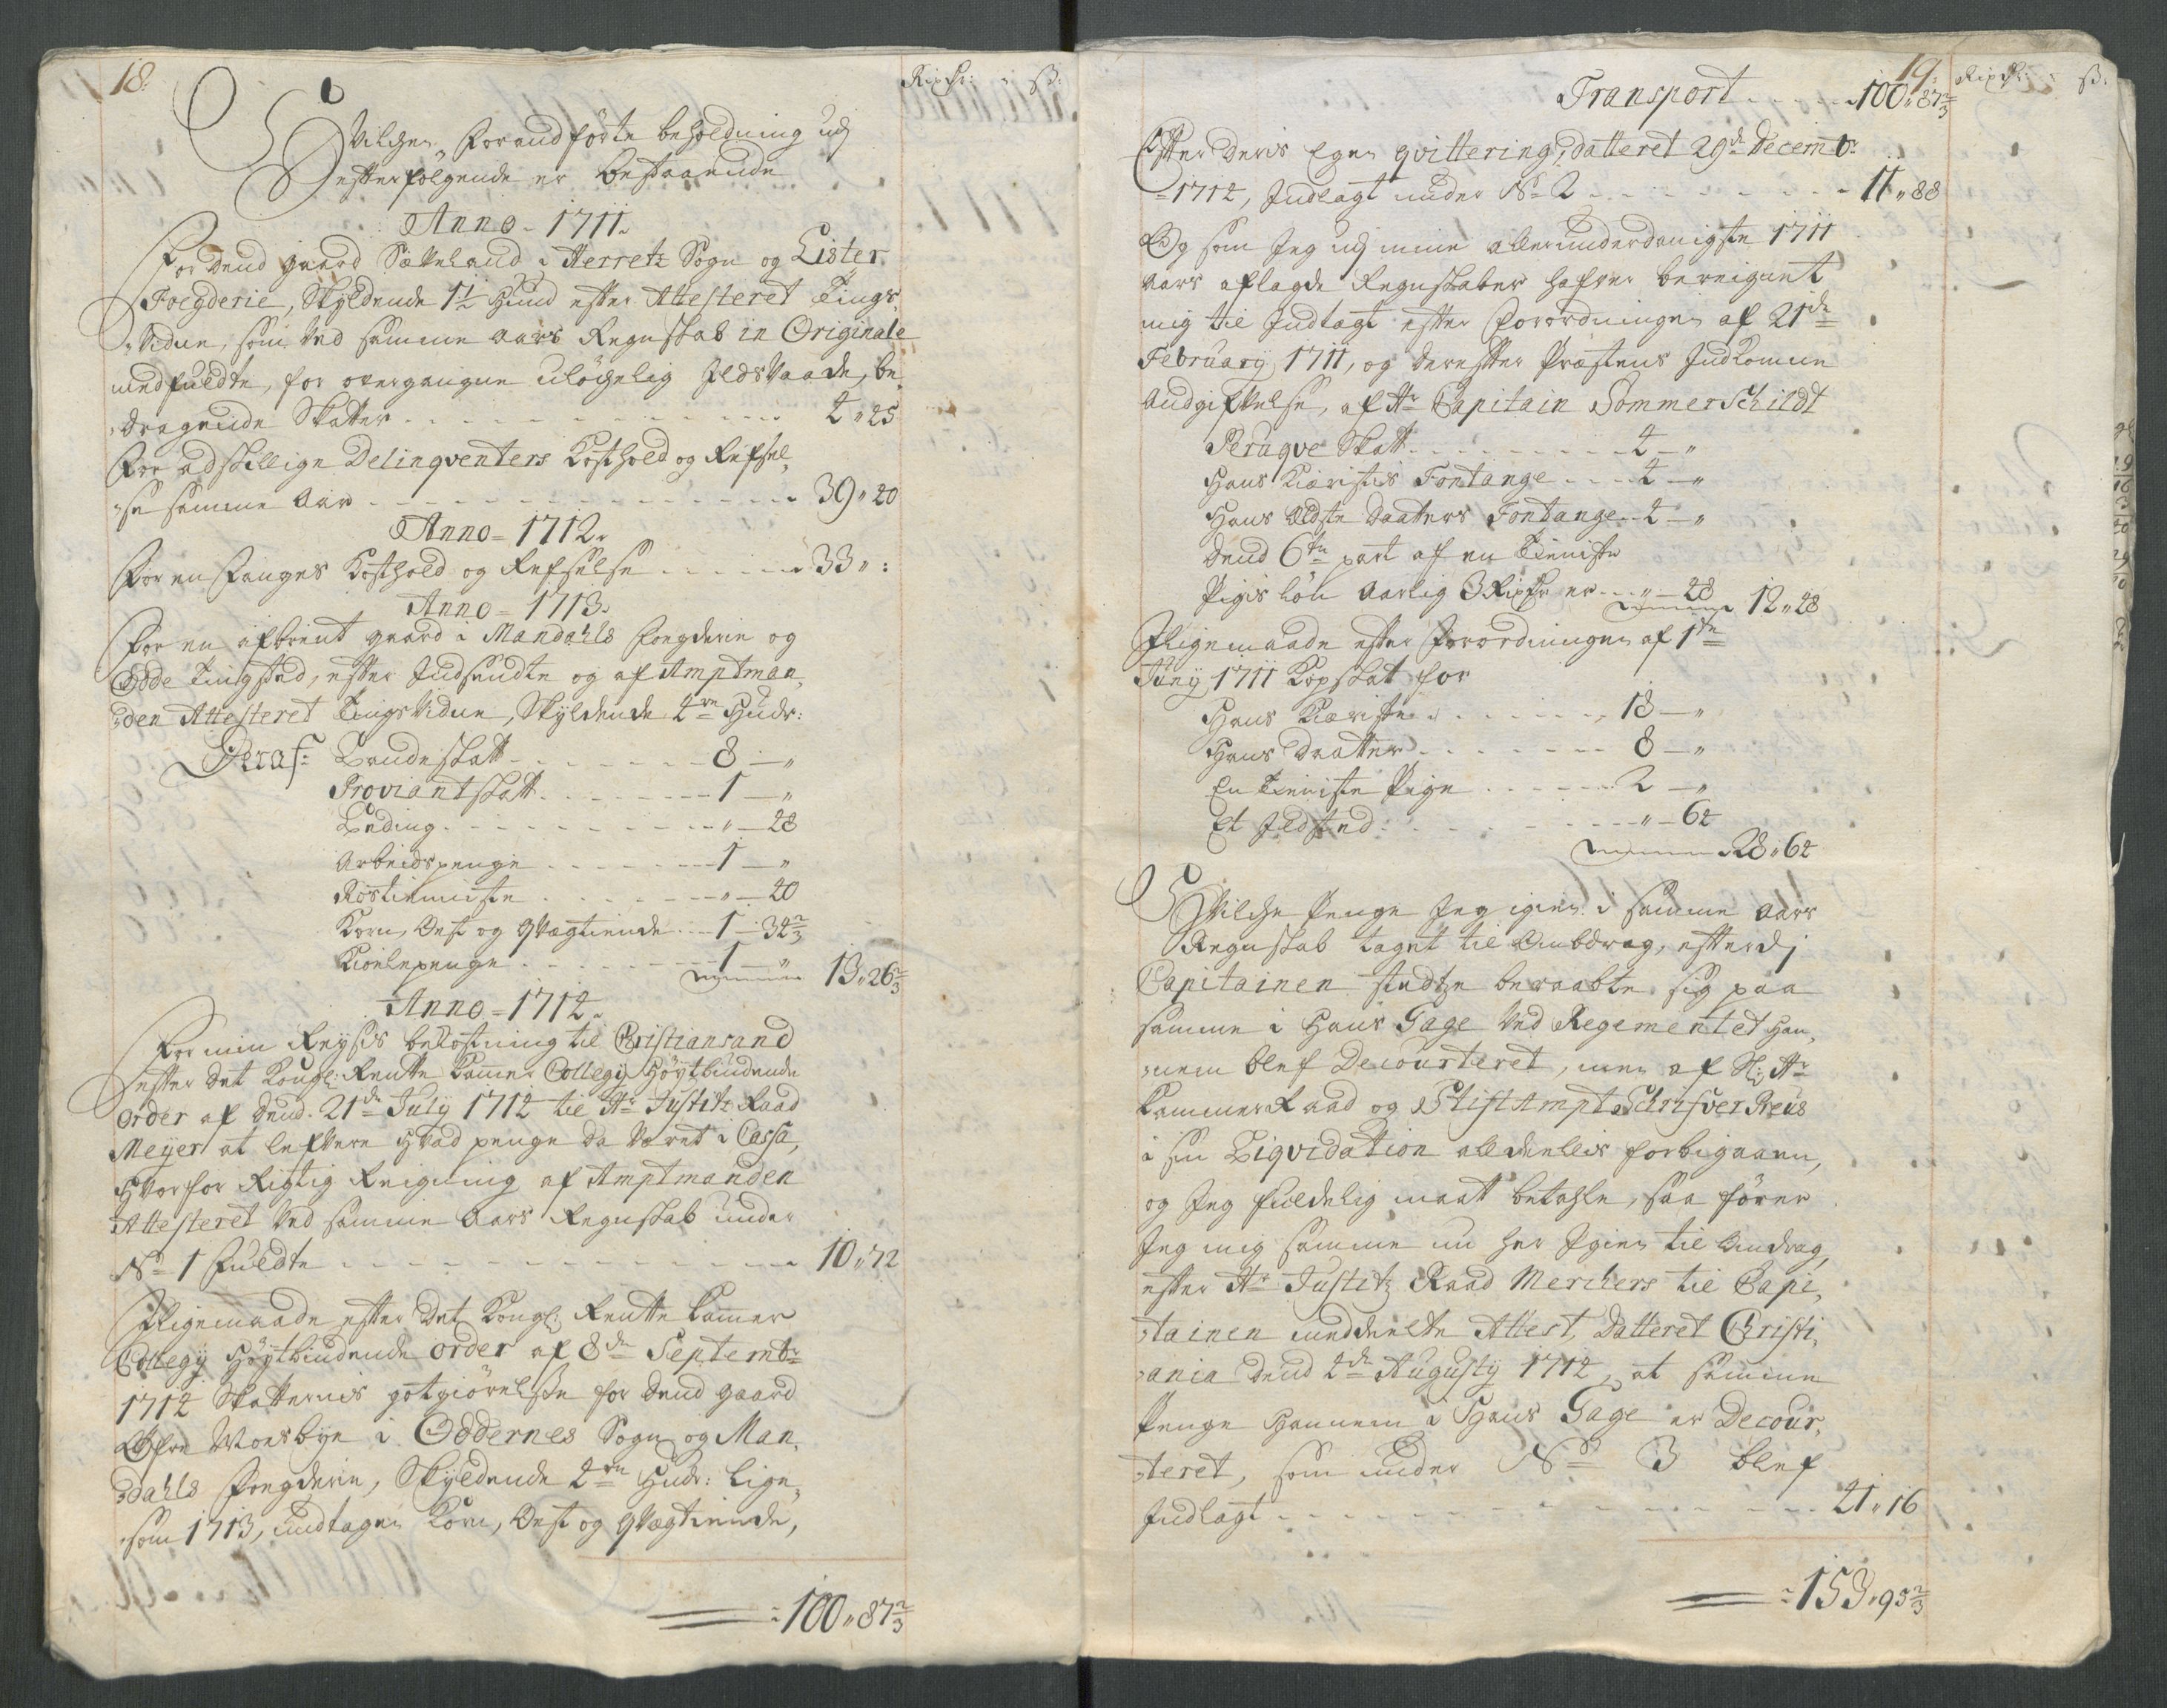 18.
Rixdr: ß:
Hvilchen forandførte beholdning udj
efterfølgende er bestaaende
Anno 1711.
For dend gaard Sæveland i Herretz Sogn og Lister
Foegderie, Skyldende 1½ Huud efter Attesteret Tings,
Vidne, som ved samme aars Regnskab in Originale
medfuldte, for overgangne uløchelig Ildsvaade, be,
dragende Skatter 4 " 25
For adskillige Delinqventers Kosthold og Refsel,
se samme Aar 39 " 20
Anno = 1712.
For en Fanges Kosthold og Refselse 33 " :
Anno = 1713.
For en afbrent gaard i Mandahls foegderie og
Odde Tingsted, efter Indsendte og af Amptman,
den Attesteret Tings Vidne, Skyldende 4re Hudr:
Deraf: Landeskatt 8 — "
Proviantskatt 1 — "
Leding " — 28
Arbeidspenge 1 — "
Rostieniste " — 20
Korn, Oest og Qvægtiende 1 — 34 2/3
Kiørlepenge 1 — "
13 " 26 2/3
Anno = 1714.
For min Reyses bekostning til Christiansand
efter det Kongl: Rente Kammer Collegij Høytbindende
Order af dend 21de July 1714 til Hr Justitz Raad
Meyer at lefvere hvad penge da været i Cassa,
hvorfor Rigtig Reigning af Amptmanden
Attesteret ved samme Aars Regnskab under
No 1 fuldte 10 " 72
Iligemaade efter det Kongl: Rente Kammer
Collegij Høytbindende order af 8de Septembr
1714 Skatternis gotgiørelse for dend gaard
Øfre Mosbye i Oddernes Sogn og Man,
dahls foegderie, Skyldende 4re Hudr: lige,
som 1713, undtagen Korn, Oest og Qvægtiende,
100 " 87 2/3
19.
Rixdr: ß:
Transport 100 " 87 2/3
Efter deris Egen qvittering, datteret 29de Decembr
1714, Indlagt under No 2 11 " 88
Og som Jeg udj mine allerunderdanigste 1711
aars aflagde Regnskaber hafver bereignet
mig til Indtægt efter Forordningen af 21de
February 1711, og derefter Præstens Indkomne
Andgiftelse, af Hr Capitain Sommerschildt
Peruqve Skatt 4 — "
Hans Kiæristis Fontange 4 — "
Hans Eldste Daatters Fontange 4 — "
Dend 6te part af en Tieniste
Pigis løn aarlig 3 Rixdr er " — 28
12 " 28
Iligemaade efter Forordningen af 1te
Juny 1711 Kopskat for
Hans Kiæriste 18 — "
Hans Daatter 8 — "
En Tieniste Pige 2 — "
Et Ildsted: " — 64
28 " 64
Hvilche Penge Jeg igien i samme Aars
Regnskab taget til Ambdrag, efterdj
Capitainen stedtze beraabte sig paa
samme i Hans Gage ved Regementet Han,
nem blef Decourteret, men af Sl: Hr
Kammerraad og StiftAmptSchrifver Reus
i sin Liqvidation aldeelis forbigaaen,
og Jeg fuldelig maat betahle, saa fører
Jeg mig samme nu her Igien til Andrag,
efter Hr Justitz Raad Merchers til Capi,
tainen meddeelte Attest, Datteret Christi,
ania dend 4de Augusty 1714, at samme
Penge Hannem i Hans Gage er Decour,
teret, som under No 3 blef
Indlagt 41 " 16
153 " 95 2/3